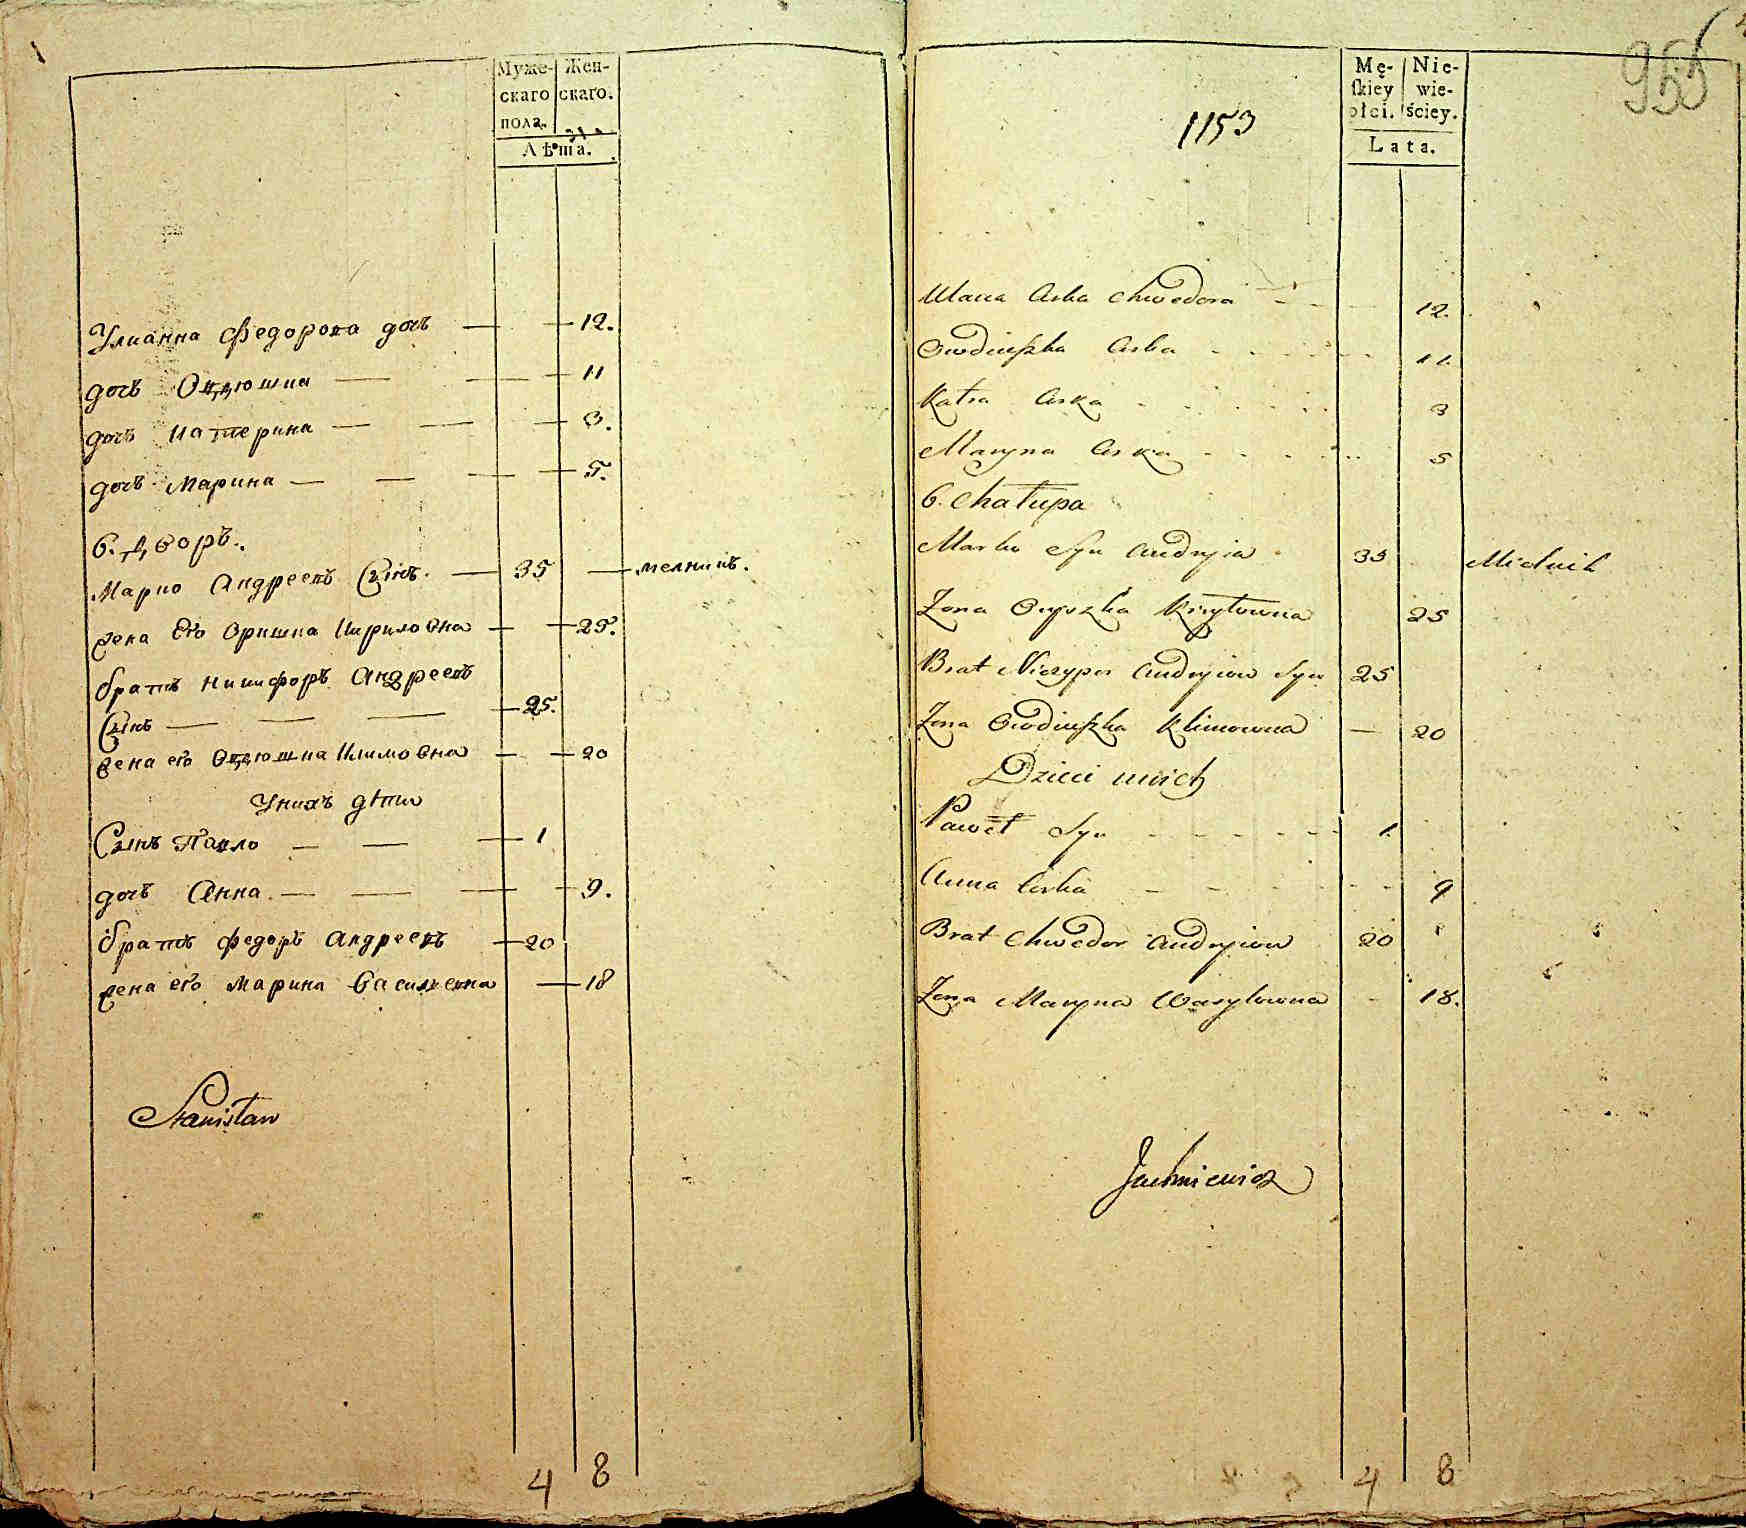 Муже-
скаго
пола.
Жен-
скаго.
Лѣта.
Улианна Федорова дочь — — 12.
дочь Овдюшка — — — 11
дочь Катерина — — — 3.
дочь Марина — — — 5.
6. Дворъ.
Марко Андреевъ Сынъ. — 35 — мелникъ.
жена Его Оришка Кириловна — — 25.
братъ Никифоръ Андреевъ
Сынъ — — — 25.
жена его Овдюшка Климовна — — 20
У нихъ дѣти
Сынъ Павло — — — 1
дочь Анна — — — — 9.
братъ Федоръ Андреевъ — 20
жена его Марина Василевна — 18
Stanisław
4 8
955
1153
Mę-
skiey
płci.
Nie-
wieściey.
Lata.
Ulana Corka Chwedora 12.
Owdiuszka Corka 11.
Katra Corka 3
Maryna Corka 5
6. Chałupa
Marko Syn Andryia 35 Mielnik
Zona Oryszka Kryłowna 25
Brat Niczypor Andryiow Syn 25
Zona Owdiuszka Klimowna — 20
Dzieci u nich
Paweł Syn 1.
Anna Corka 9
Brat Chwedor Andryiow 20
Zona Maryna Wasylowna - 18.
Juchniewicz
4 8